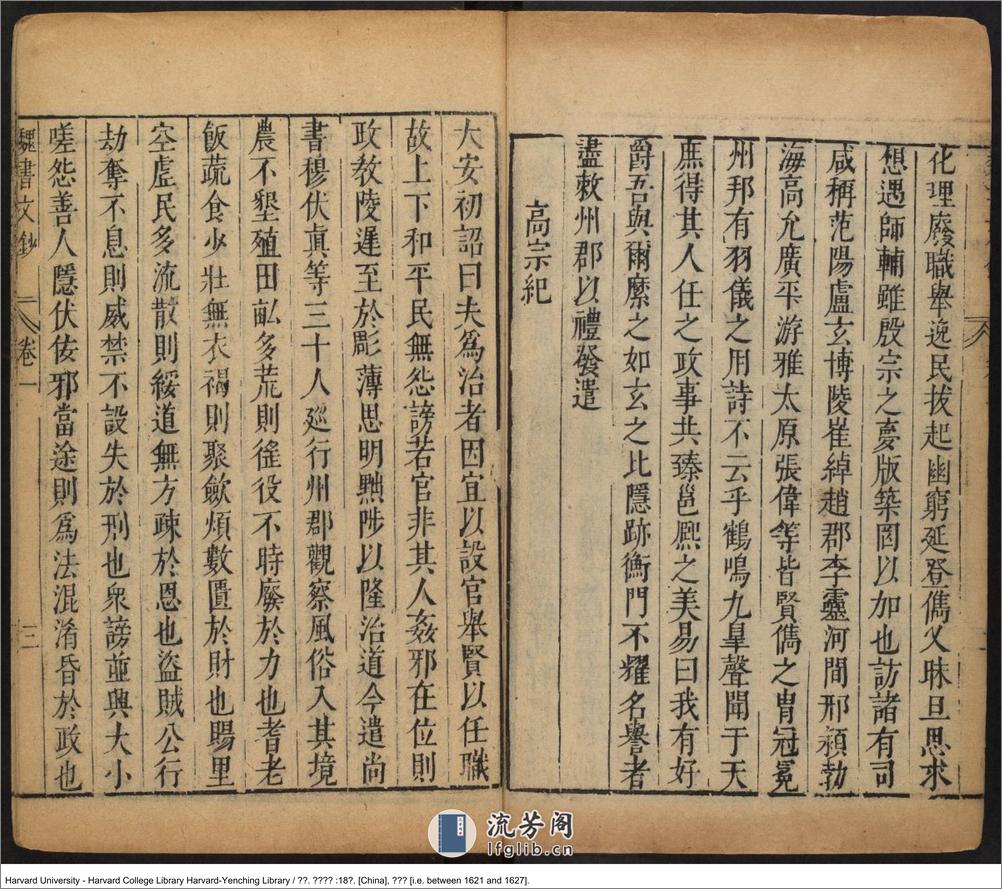 化理廢職舉逸民拔起幽窮延登儁乂昧旦思求
想遇師輔雖殷宗之夢版築罔以加也訪諸有司
咸稱范陽盧玄博陵崔綽趙郡李靈河間邢頴勃
海高允廣平游雅太原張偉等皆賢儁之胄冠冕
州邦有羽儀之用詩不云乎鶴鳴九皐聲聞于天
庶得其人任之政事共臻邕熈之美易曰我有好
爵吾與爾縻之如玄之比隱跡衡門不耀名譽者
盡敕州郡以禮發遣
高宗紀
大安初詔曰夫爲治者因宜以設官舉賢以任職
故上下和平民無怨謗若官非其人姦邪在位則
政教陵遲至於彫薄思明黜陟以隆治道今遣尚
書穆伏眞等三十人巡行州郡觀察風俗入其境
農不墾殖田畝多荒則徭役不時廢於力也耆老
飯蔬食少壯無衣褐則聚歛煩數匱於財也閭里
空虛民多流散則綏道無方疎於恩也盜賊公行
劫奪不息則威禁不設失於刑也衆謗並興大小
嗟怨善人隱伏佞邪當途則爲法混淆昏於政也
魏書文鈔 卷一 三
流芳阁
lfglib.cn
Harvard University - Harvard College Library Harvard-Yenching Library / ??. ???? :18?. [China], ??? [i.e. between 1621 and 1627].